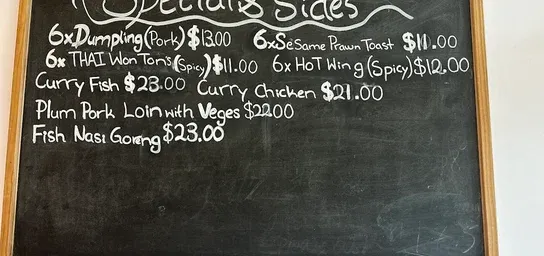 Specials & Sides
6x Dumpling (Pork) $13.00 6x Sesame Prawn Toast $11.00
6x THAI Won Tons (Spicy) $11.00 6x HoT Wing (Spicy) $12.00
Curry Fish $23.00 Curry Chicken $21.00
Plum Pork Loin with Veges $22.00
Fish Nasi Goreng $23.00